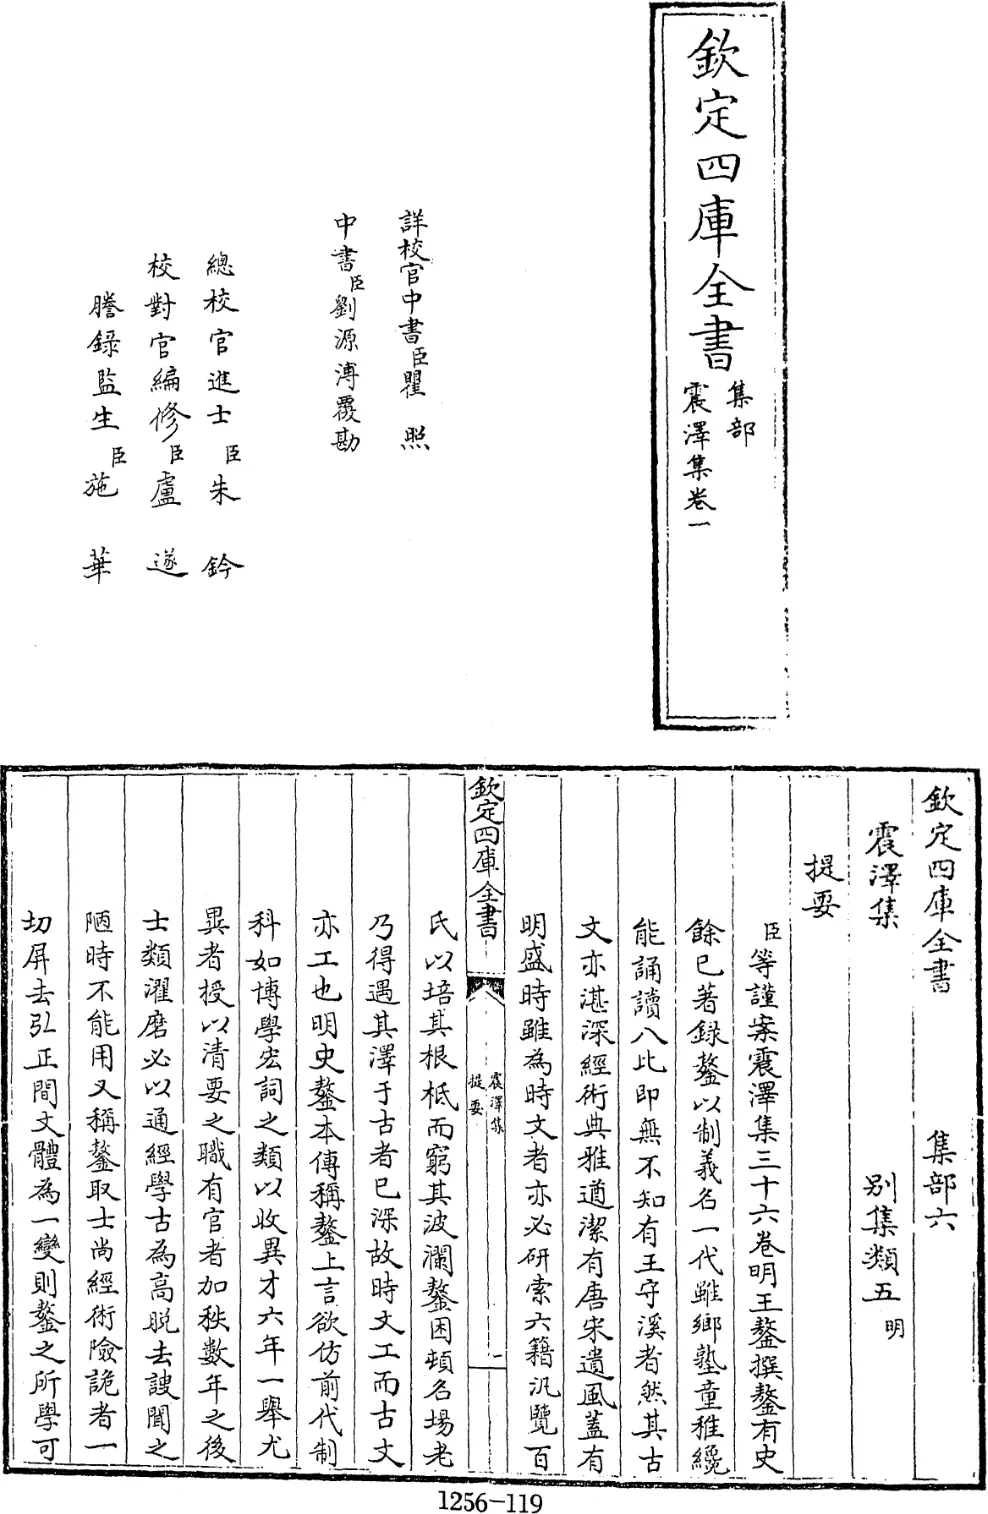 欽定四庫全書
集部
震澤集卷一
詳校官中書臣瞿照
中書臣劉源溥覆勘
總校官進士臣朱鈐
校對官編修臣盧遂
謄錄監生臣施華
欽定四庫全書 集部六
震澤集 別集類五 明
提要
臣等謹案震澤集三十六卷明王鏊撰鏊有史
餘已著録鏊以制義名一代雖鄉塾童稚纔
能誦讀八比即無不知有王守溪者然其古
文亦湛深經術典雅遒潔有唐宋遺風蓋有
明盛時雖為時文者亦必研索六籍汎覽百
欽定四庫全書
震澤集
提要
氏以培其根柢而窮其波瀾鏊困頓名場老
乃得遇其澤于古者已深故時文工而古文
亦工也明史鏊本傳稱鏊上言欲仿前代制
科如博學宏詞之類以收異才六年一舉尤
異者授以清要之職有官者加秩數年之後
士類濯磨必以通經學古為高脱去謏聞之
陋時不能用又稱鏊取士尚經術險詭者一
切屏去弘正間文體為一變則鏊之所學可
1256-119